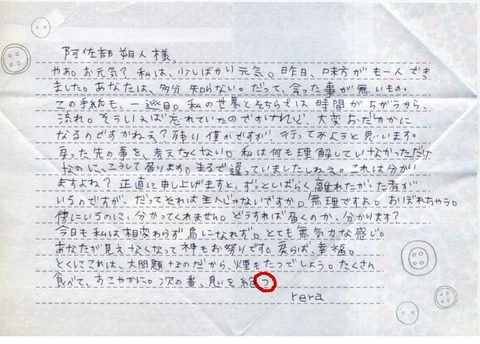 阿佐部朔人様、
やあ。お元気？私は、少しばかり元気。昨日、味方が も一人でき
ました。あなたは、多分 知らない。だって、会った事が無いもの。
この手紙も、一巡目。私の世界とそちらでは 時間が ちがうから、
流れ。そういえば 忘れていたのですけれど、大変 おだやかに
なるのですかねえ？残り 僅かですが、行ってみようと思います。
戻った先の事を、考えたくない。私は何も理解していなかっただけ
なのに、こうして居ります。まるで違っていましたしねえ。これは分かり
ますよね？正直に申し上げますと、ずっとしばらく離れたがった者が
いるのですが、だってそれは主人じゃないですか。無理ですよ。おぼれちゃう。
傍にいるのに、分かってくれません。どうすれば届くのか、分かります？
今日も私は相変わらず 鳥になれず。とても無気力な感じ。
あなたが見えなくなって 神も お祭りです。変らば、幸福。
とくにこれは、大問題 なのだから、煙もたつでしょう。たくさん
食べて、すこやかに。次の春、息を 絶つ
rera